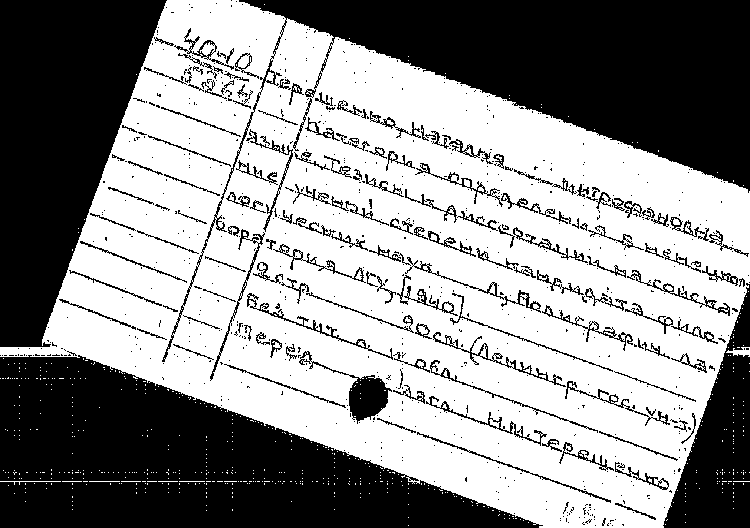 40-10
5364
Терещенко, Наталия Митрофановна
Категория определения в немецком
языке. Тезисы к диссертации на соиска-
ние ученой степени кандидата фило-
логических наук. Л., Полиграфич. ла-
боратория ЛГУ, [1940].
2 стр. 20см. (Ленингр. гос. ун-т.)
Без тит. л. и обл.
Перед загл.: Н.М. Терещенко